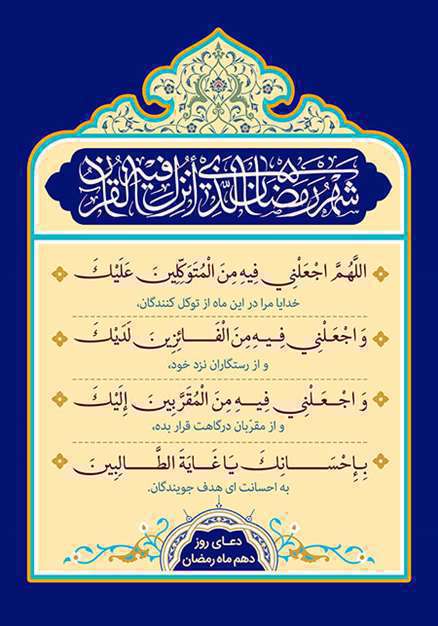 شَهْرُ رَمَضَانَ الَّذِي أُنْزِلَ فِيهِ الْقُرْآنُ
اللَّهُمَّ اجْعَلْنِي فِيهِ مِنَ الْمُتَوَكِّلِينَ عَلَيْكَ
خدایا مرا در این ماه از توکل کنندگان،
وَ اجْعَلْنِي فِيهِ مِنَ الْفَائِزِينَ لَدَيْكَ
و از رستگاران نزد خود،
وَ اجْعَلْنِي فِيهِ مِنَ الْمُقَرَّبِينَ إِلَيْكَ
و از مقرّبان درگاهت قرار بده،
بِإِحْسَانِكَ يَا غَايَةَ الطَّالِبِينَ
به احسانت ای هدف جویندگان.
دعـای روز
دهم ماه رمضان